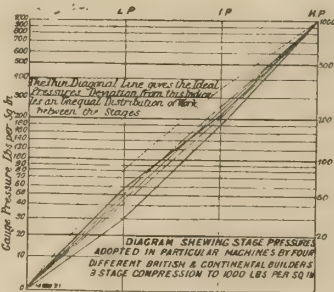 LP IP HP
1000
900
800
700
600
500
400
300
200
180
160
140
120
100
90
80
70
60
50
40
30
20
10
0
1000
500
200
100
50
20
Gauge Pressure Lbs per Sq In
The Thin Diagonal Line gives the Ideal
Pressures Deviation from this Indica-
tes an Unequal Distribution of Work
between the Stages
DIAGRAM SHEWING STAGE PRESSURES
ADOPTED IN PARTICULAR MACHINES BY FOUR
DIFFERENT BRITISH & CONTINENTAL BUILDERS
3 STAGE COMPRESSION TO 1000 LBS PER SQ IN